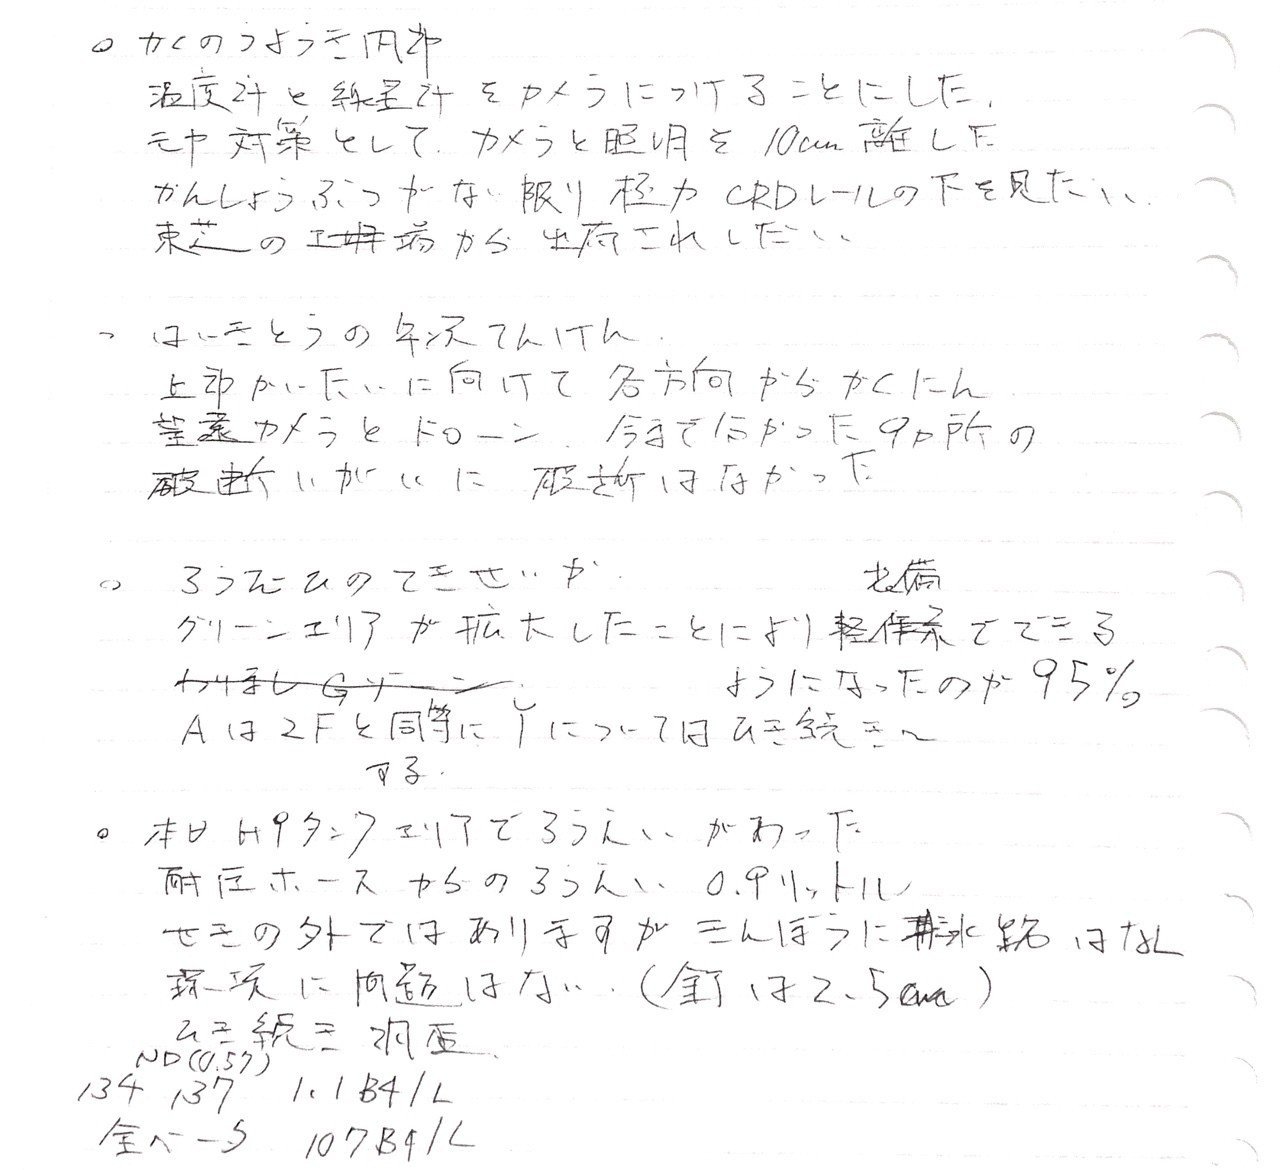 ○ かくのうようき内部
温度計と線量計をカメラにつけることにした.
モヤ対策として カメラと照明を10cm離した
かんしょうぶつがない限り極力CRDレールの下を見たい.
東芝の から出荷されしだい
はいきとうの年次てんけん.
上部かいたいに向けて 各方向からかくにん
望遠カメラとドローン. 今まで分かった9カ所の
破断いがいに 破断はなかった
○ ろうえひのてきせいか.
装備
グリーンエリアが拡大したことにより軽 でできる
わけましGゾーン ようになったのが95%
Aは2Fと同等に Yについてはひき続き〜
する.
○ 本日H9タンクエリアでろうえいがあった
耐圧ホースからのろうえい 0.9リットル
せきの外ではありますがきんぼうに排水路はなし
環境に問題はない.(釘は2.5cm)
ひき続き調査.
ND(0.57)
134 137 1.1Bq/L
全ベータ 107Bq/L